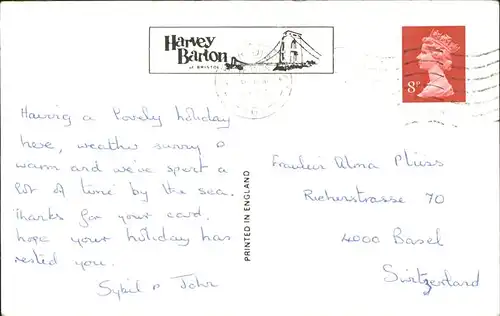 Harvey
Barton
of BRISTOL
8P
Having a lovely holiday
here, weather sunny &
warm and we've spent a
lot of time by the sea.
Thanks for your card,
hope your holiday has
rested you.
Sybil & John
PRINTED IN ENGLAND
Fräulein Alma Plüss
Richerstrasse 70
4000 Basel
Switzerland